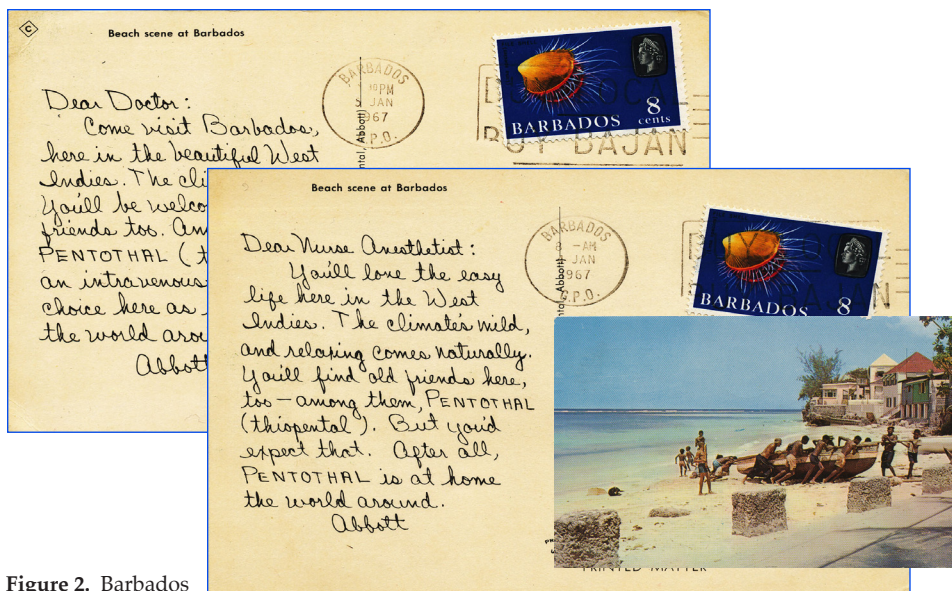 Beach scene at Barbados
BARBADOS
PM
JAN
967
G.P.O.
BARBADOS 8 cents
BUY BAJAN
Dear Doctor:
Come visit Barbados,
here in the beautiful West
Indies. The
You'll be
friends too.
PENTOTHAL
an intravenous
choice here as
the world
Abbott
Beach scene at Barbados
BARBADOS
8 -AM
JAN
967
G.P.O.
Abbott)
BARBADOS 8
Dear Nurse Anesthetist:
You'll love the easy
life here in the West
Indies. The climate's mild,
and relaxing comes naturally.
You'll find old friends here,
too – among them, PENTOTHAL
(thiopental). But you'd
expect that. After all,
PENTOTHAL is at home
the world around.
Abbott
PRINTED MATTER
Figure 2. Barbados